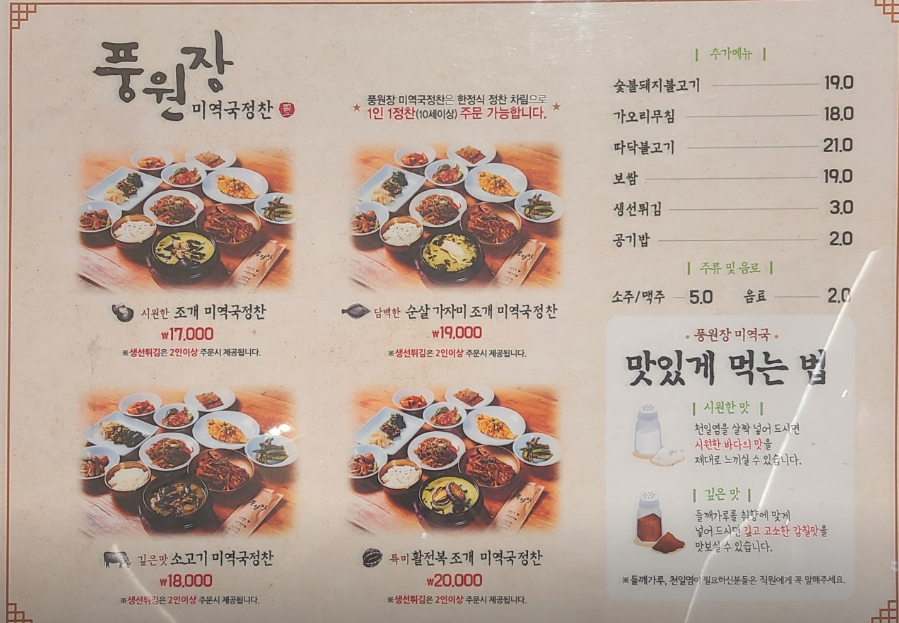 풍원장
미역국정찬
풍원장 미역국정찬은 한정식 정찬 차림으로
1인 1정찬(10세이상) 주문 가능합니다.
시원한 조개 미역국정찬
₩17,000
※생선튀김은 2인이상 주문시 제공됩니다.
담백한 순살 가자미 조개 미역국정찬
₩19,000
※생선튀김은 2인이상 주문시 제공됩니다.
깊은맛 소고기 미역국정찬
₩18,000
※생선튀김은 2인이상 주문시 제공됩니다.
특미 활전복 조개 미역국정찬
₩20,000
※생선튀김은 2인이상 주문시 제공됩니다.
추가메뉴
숯불돼지불고기 19.0
가오리무침 18.0
따닥불고기 21.0
보쌈 19.0
생선튀김 3.0
공기밥 2.0
주류 및 음료
소주/맥주 5.0 음료 2.0
풍원장 미역국
맛있게 먹는 법
시원한 맛
천일염을 살짝 넣어 드시면
시원한 바다의 맛을
제대로 느끼실 수 있습니다.
깊은 맛
들깨가루를 취향에 맞게
넣어 드시면 깊고 고소한 감칠맛을
맛보실 수 있습니다.
※들깨가루, 천일염이 필요하신분들은 직원에게 꼭 말해주세요.